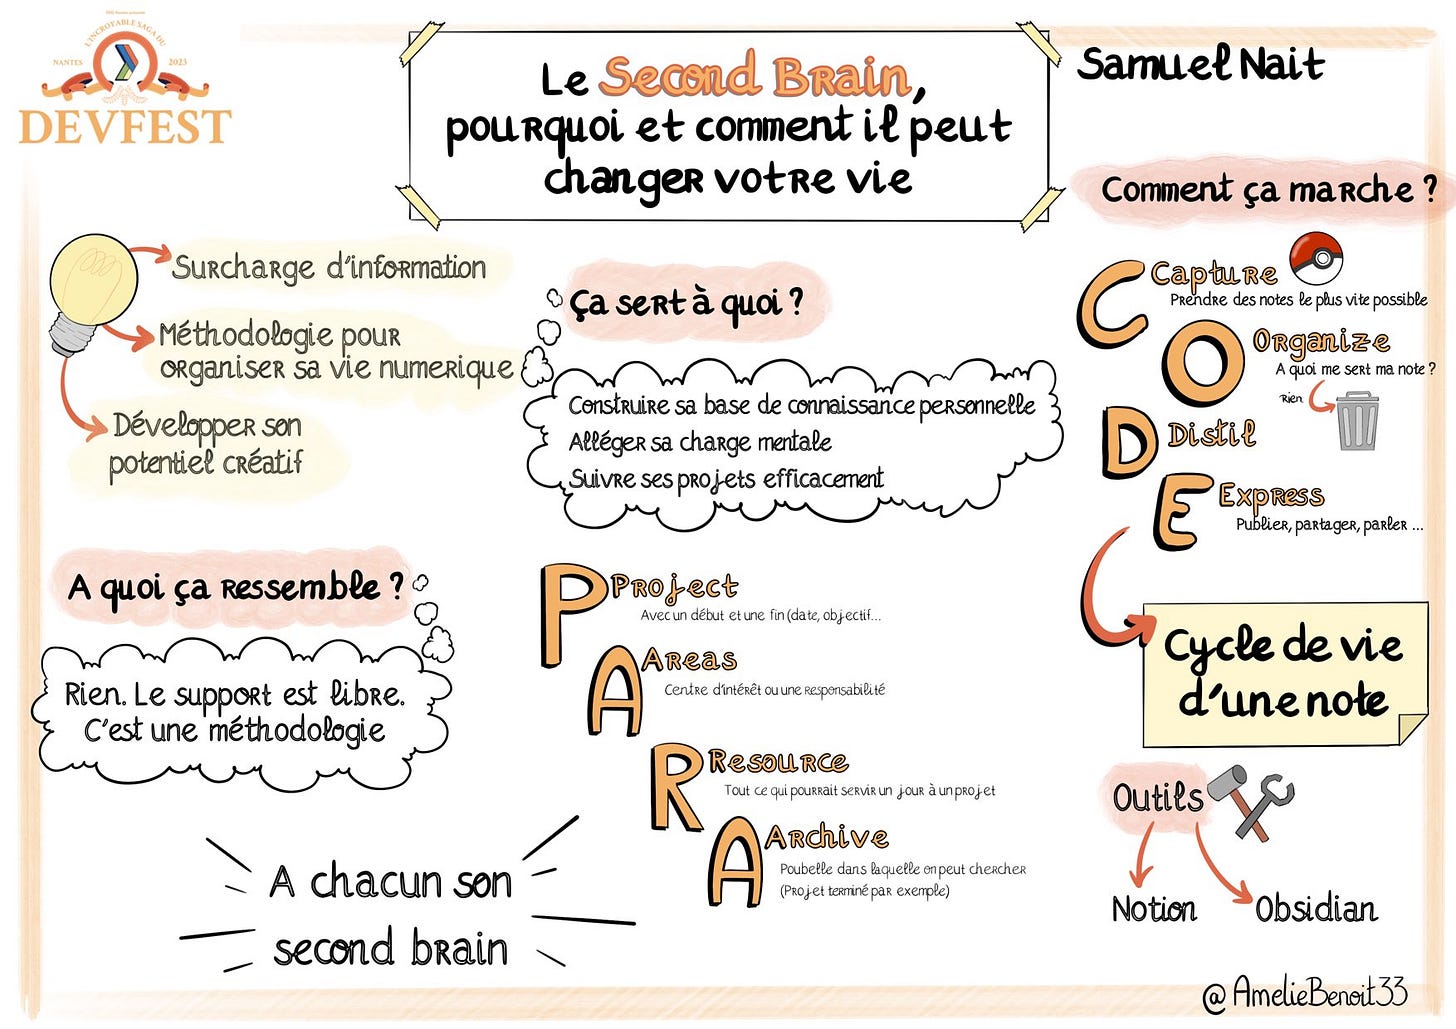 L'INCROYABLE SAGA DU
NANTES 2023
DEVFEST
Le Second Brain,
pourquoi et comment il peut
changer votre vie
Samuel Nait
Surcharge d'information
Méthodologie pour
organiser sa vie numerique
Développer son
potentiel créatif
Ça sert à quoi ?
Construire sa base de connaissance personnelle
Alléger sa charge mentale
Suivre ses projets efficacement
A quoi ça ressemble ?
Rien. Le support est libre.
C'est une méthodologie
A chacun son
second brain
P Project
Avec un début et une fin (date, objectif...
A Areas
Centre d'intérêt ou une responsabilité
R Resource
Tout ce qui pourrait servir un jour à un projet
A Archive
Poubelle dans laquelle on peut chercher
(Projet terminé par exemple)
Comment ça marche ?
C Capture
Prendre des notes le plus vite possible
O Organize
A quoi me sert ma note ?
Rien
D Distil
E Express
Publier, partager, parler ...
Cycle de vie
d'une note
Outils
Notion
Obsidian
@AmelieBenoit33